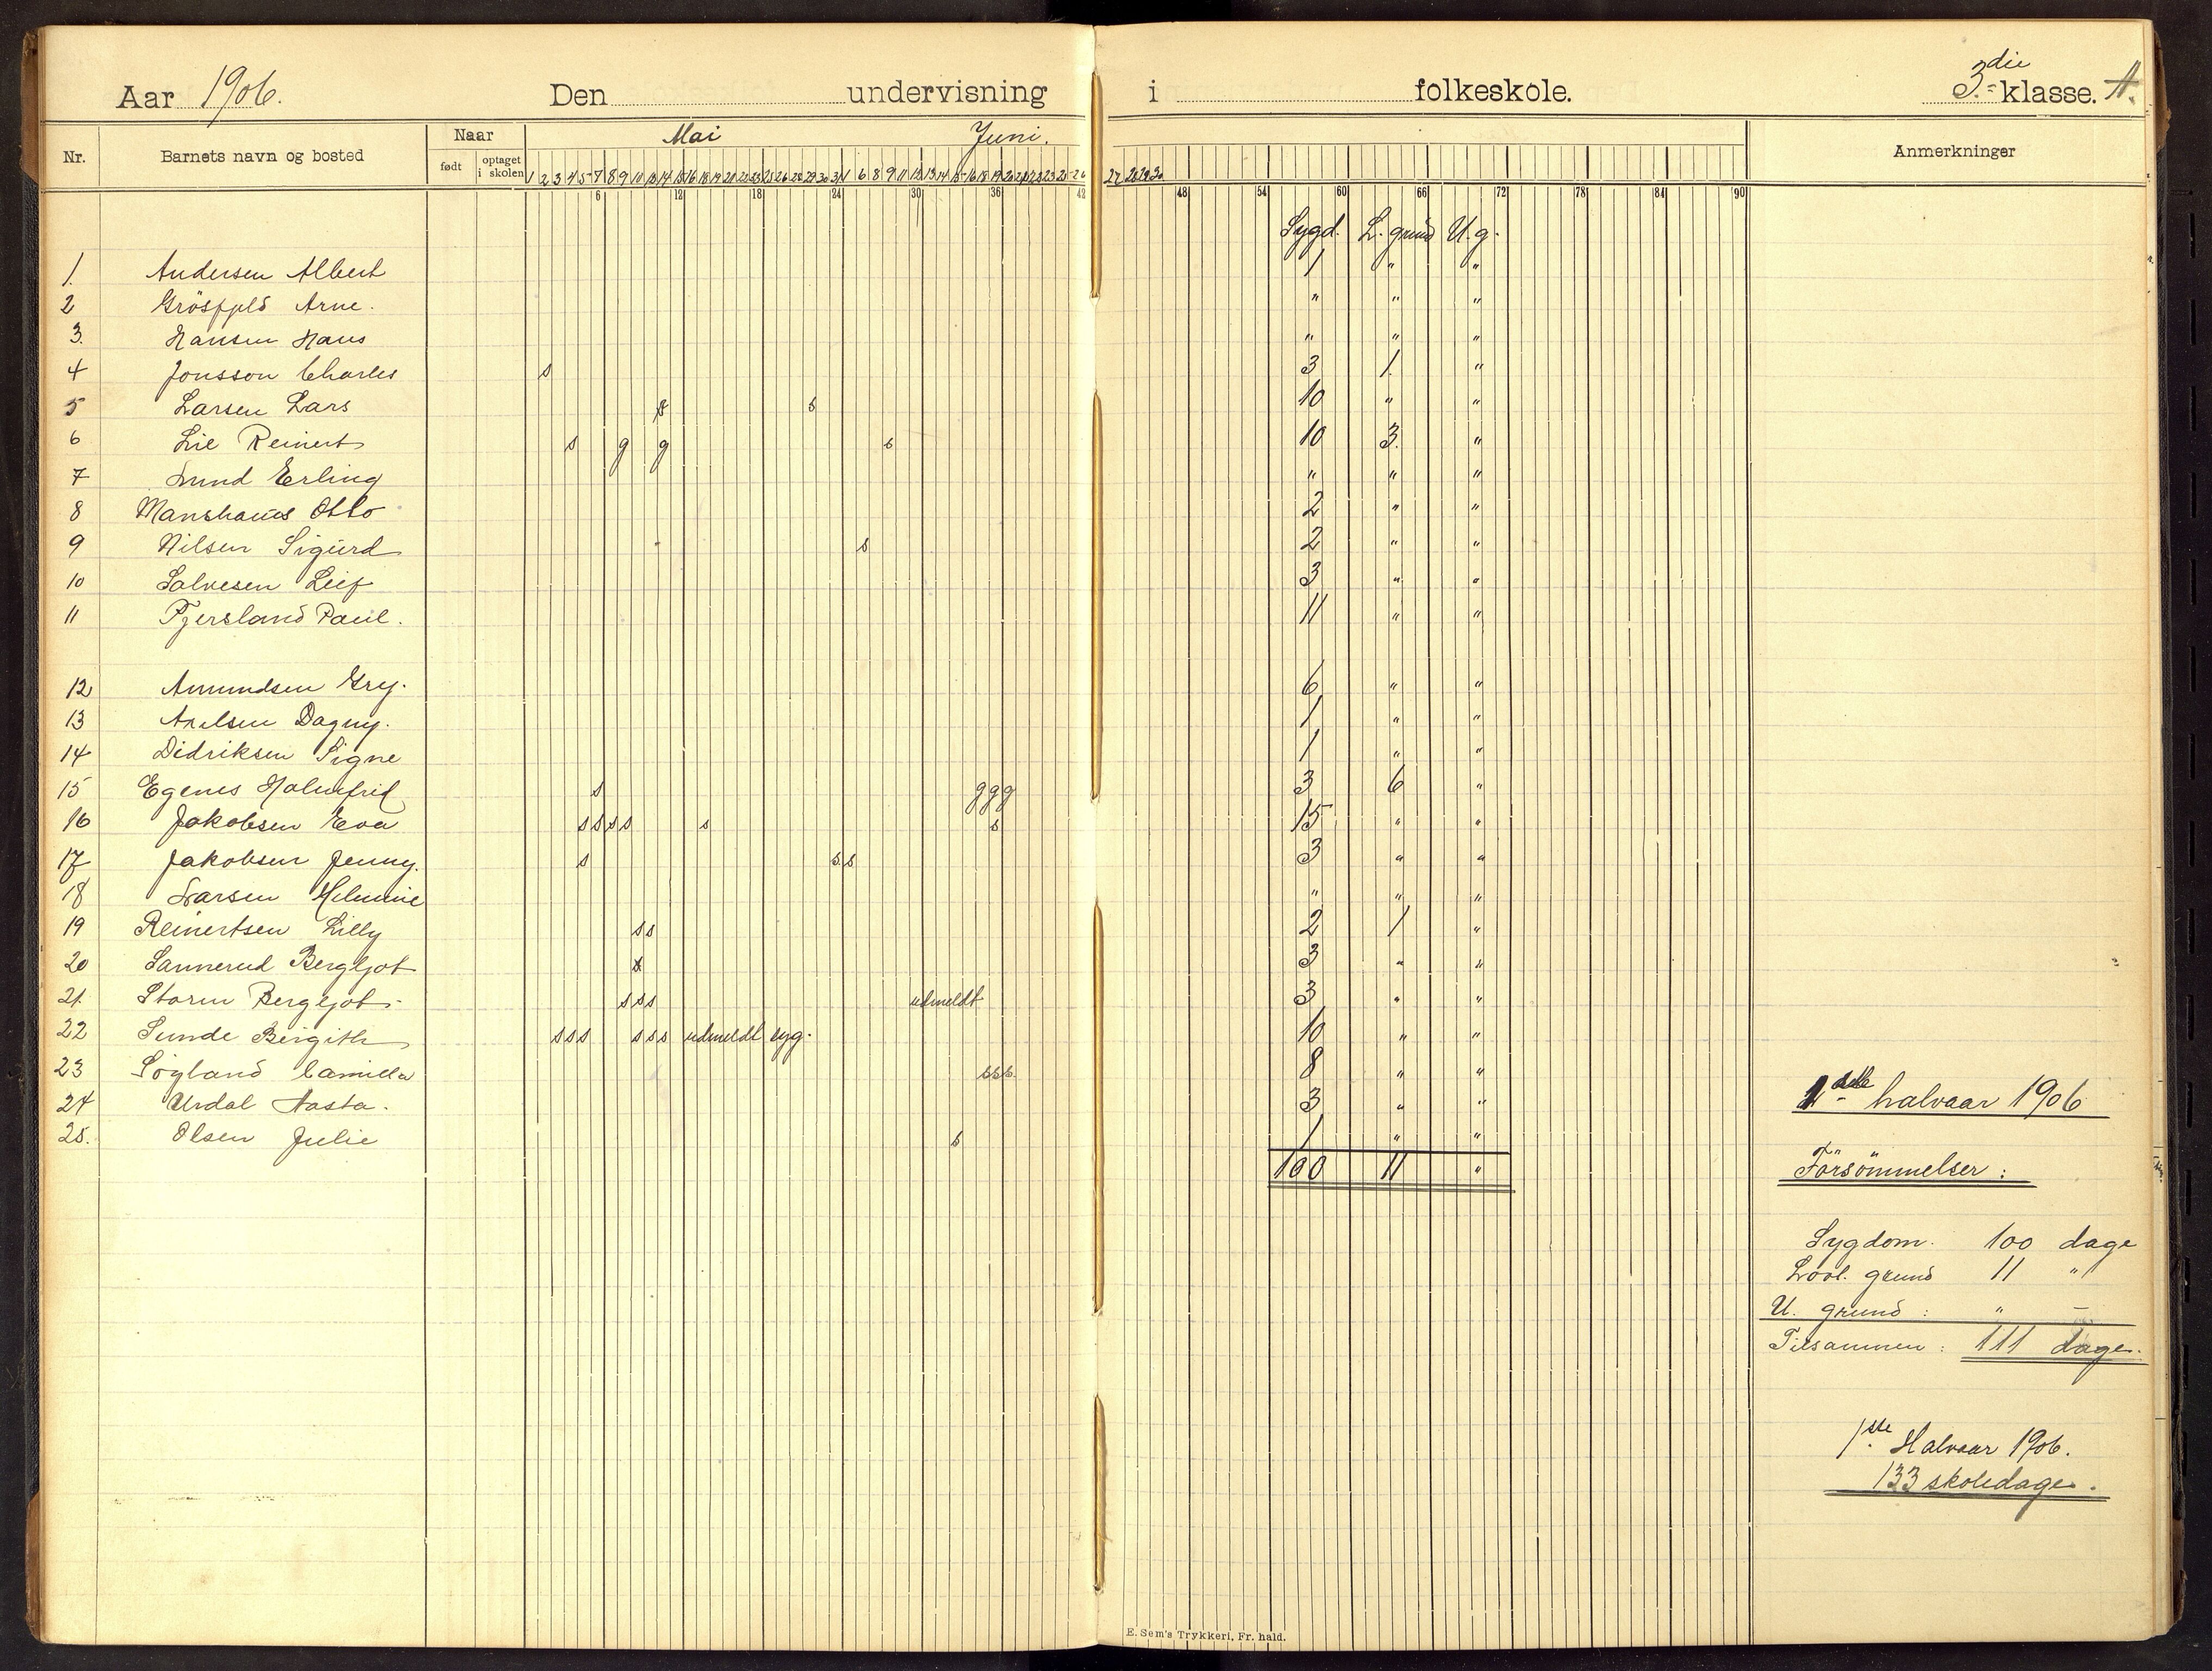 Aar 1906. Den undervisning i folkeskole. 3die klasse. A.
Nr. Barnets navn og bosted Naar født optaget i skolen Mai Juni. Anmerkninger
1 2 3 4 5 7 8 9 10
27 28 29 30
6 12 18 24 30 36 42 48 54 60 66 72 78 84 90
Sygd. L. grund U. g.
1. Andersen Albert 1 " "
2 Arne. " " "
3. Hansen Hans " " "
4 Jonsson Charles s 3 1. "
5 Larsen Lars s s 10 " "
6 Lie Reinert s g g s 10 3. "
7 Lund Erling " " "
8 Manshaus Otto 2 " "
9 Nilsen Sigurd s 2 " "
10 Salvesen Leif 3 " "
11 Tjersland Paul. 11 " "
12 Amundsen Gry. 6 " "
13 Axelsen Dagny. 1 " "
14 Didriksen Signe 1 " "
15 Egenes Holmfrid s g g g 3 6 "
16 Jakobsen Eva s s s s s s 15 " "
17 Jakobsen Jenny. s s s 3 " "
18 Larsen " " "
19 Reinertsen Lilly s s 2 1 "
20 Sannerud Bergljot 3 " "
21. Storm Bergljot s s s udmeldt 3 " "
22 Sunde Birgith s s s s s s udmeldt syg. 10 " "
23 Søyland Camilla s s s. 8 " "
24 Urdal Aasta. 3 " "
25. Olsen Julie s 1 " "
100 11 "
1ste halvaar 1906
Forsömmelser:
Sygdom. 100 dage
Lovl. grund 11 "
U. grund: " –
Tilsammen: 111 dage.
1ste Halvaar 1906.
133 skoledage.
E. Sem's Trykkeri, Fr. hald.